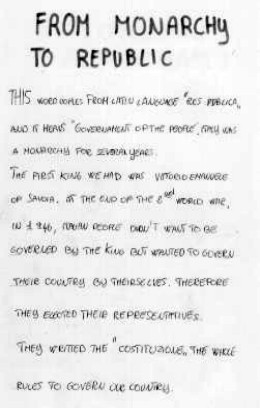 FROM MONARCHY
TO REPUBLIC
THIS WORD COMES FROM LATIN LANGUAGE "RES PUBLICA"
AND IT MEANS "GOVERNMENT OF THE PEOPLE". ITALY WAS
A MONARCHY FOR SEVERAL YEARS.
THE FIRST KING WE HAD WAS VITTORIO EMANUELE
OF SAVOIA. AT THE END OF THE 2nd WORLD WAR,
IN 1946, ITALIAN PEOPLE DIDN'T WANT TO BE
GOVERNED BY THE KING BUT WANTED TO GOVERN
THEIR COUNTRY BY THEIRSELVES. THEREFORE
THEY ELECTED THEIR REPRESENTATIVES.
THEY WRITTED THE "COSTITUZIONE", THE WHOLE
RULES TO GOVERN OUR COUNTRY.